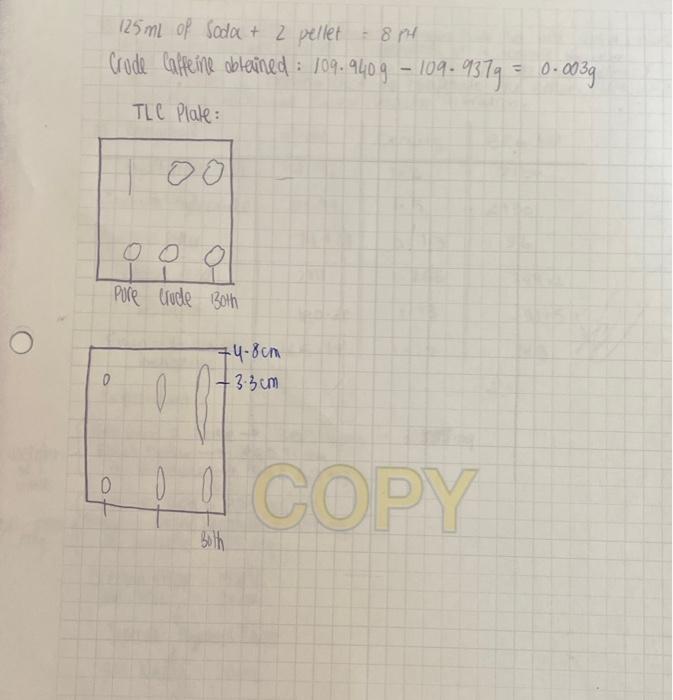 125ml of Soda + 2 pellet = 8 pH
Crude Caffeine obtained: 109.940g - 109.937g = 0.003g
TLC Plate:
Pure Crude Both
4.8cm
3.3cm
Both
COPY